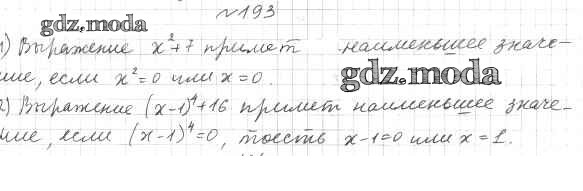 №193
gdz.moda
1) Выражение x²+7 примет наименьшее значе-
ние, если x²=0 или x=0.
gdz.moda
2) Выражение (x-1)⁴+16 примет наименьшее значе-
ние, если (x-1)⁴=0, тоесть x-1=0 или x=1.